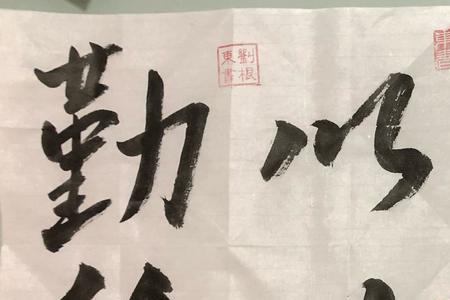 以
劉根
東書
勤